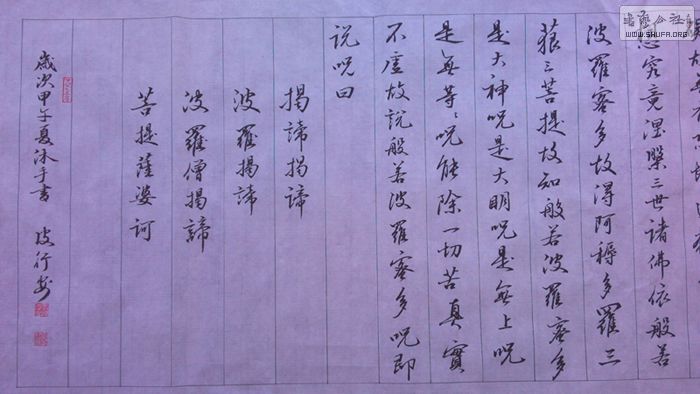 想究竟涅槃三世諸佛依般若
波羅蜜多故得阿耨多羅三
藐三菩提故知般若波羅蜜多
是大神呪是大明呪是無上呪
是無等々呪能除一切苦真實
不虛故說般若波羅蜜多呪即
說呪曰
揭諦揭諦
波羅揭諦
波羅僧揭諦
菩提薩婆訶
歲次甲子夏沐手書
書藝公社
WWW.SHUFA.ORG